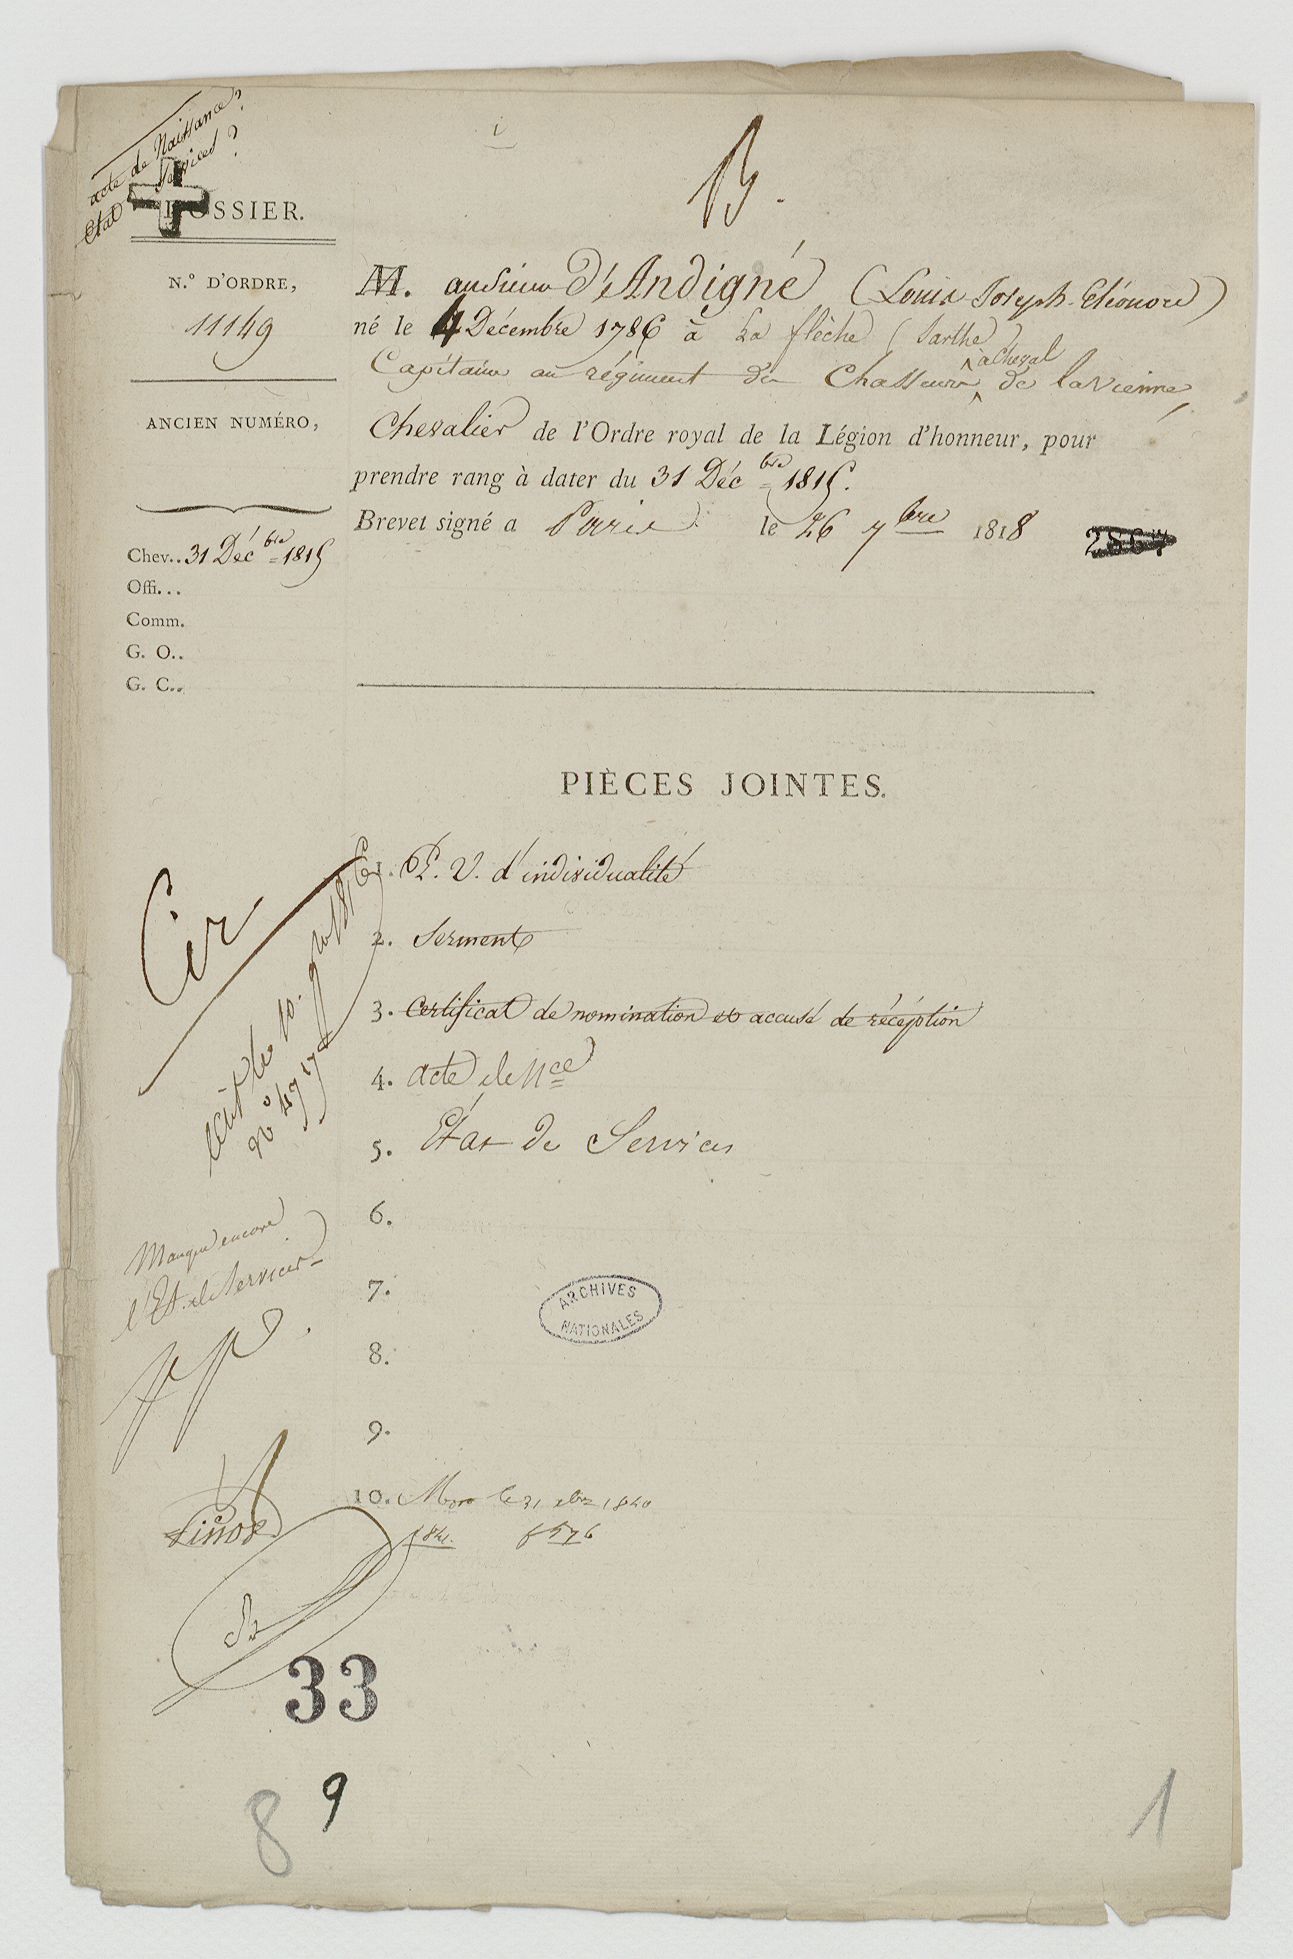 acte de Naissance?
Etat Services?
B.
DOSSIER.
N.° D'ORDRE,
11149
ANCIEN NUMÉRO,
Chev.. 31 Déc bre 1815
Offi...
Comm.
G. O..
G. C..
M. d'Andigné (Louis Joseph Eléonore)
né le 4 Décembre 1786 à La flèche (Sarthe)
Capitaine au régiment des Chasseurs à Cheval de la Vienne,
Chevalier de l'Ordre royal de la Légion d'honneur, pour
prendre rang à dater du 31 Déc bre 1815.
Brevet signé a Paris le 26 7bre 1818
PIÈCES JOINTES.
1. P. V. d'individualité
2. Serment
3. Certificat de nomination et accusé de réception
4. acte de Nce
5. Etat de Services
6.
7.
8.
9.
10. Mort le 31 xbre 1840
1841.
Cir
Ecrit le 10. 1816
N° 4717
Manque encore
l'Et. de Services
ARCHIVES
NATIONALES
33
9
8
1